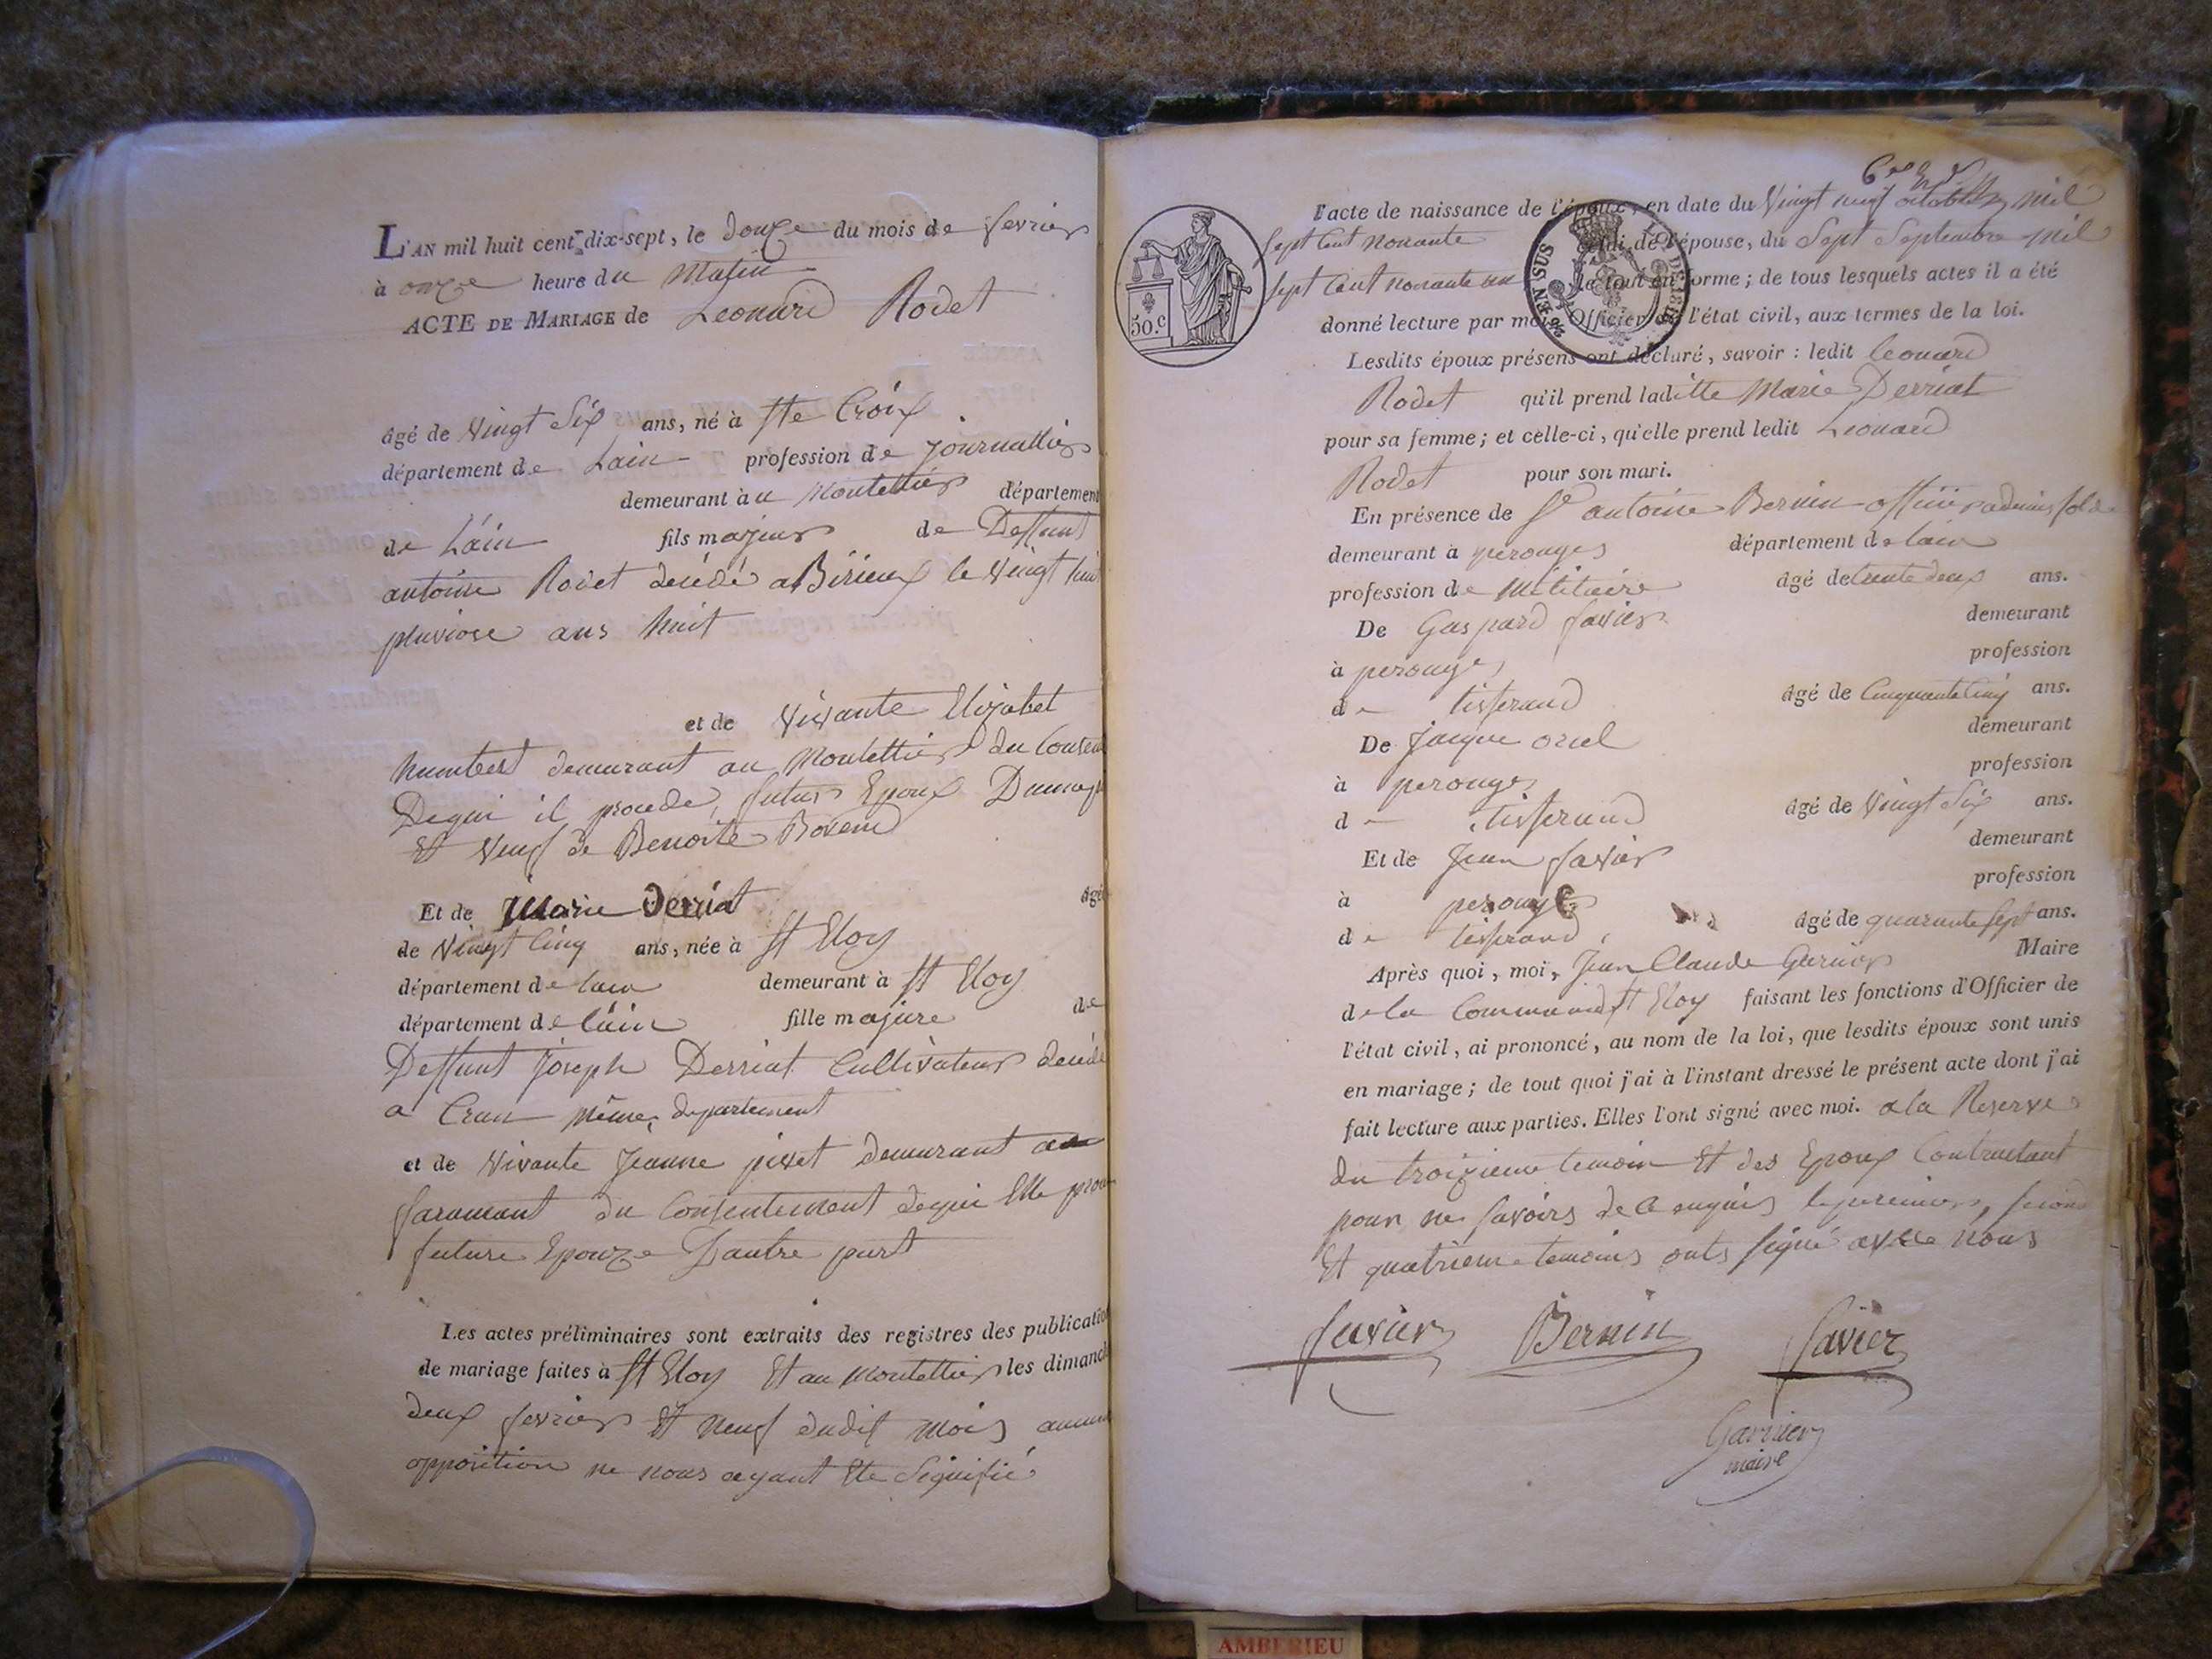 L'AN mil huit cent dix-sept, le douze du mois de fevrier
à onze heure du Matin
ACTE DE MARIAGE de Leonard Rodet
âgé de Vingt Six ans, né à Ste Croix
département de Lain profession de journallier
demeurant à u Montellier département
de Láin fils majeur de Deffunt
antoine Rodet décédé a Birieux le Vingt huit
pluviose ans huit
et de Vivante Elizabet
humbert demeurant au Montellier du Consen
Dequi il procede, futur Epoux Dunepa
Et Veuf de Benoite Bovend
Et de Marie Derriat âgée
de Vingt Cinq ans, née à St Eloy
département de Lain demeurant à St Eloy
département de Láin fille majure de
Deffunt Joseph Derriat Cultivateur décédé
a Cran même departement
et de Vivante Jeanne pivet demeurant au
faramant du Consentement dequi Elle proce
future Epouze D'autre part
Les actes préliminaires sont extraits des registres des publication
de mariage faites à St Eloy Et au Montellier les dimanch
deux fevrier Et neuf dudit mois aucune
opposition ne nous ayant Ete Signifié
l'acte de naissance de l'époux, en date du Vingt neuf octobre mil
Sept Cent Nonante celui de l'épouse, du Sept Septembre mil
Sept Cent nonante un le tout en forme; de tous lesquels actes il a été
donné lecture par moi, Officier de l'état civil, aux termes de la loi.
50.c
EN SUS
Lesdits époux présens ont déclaré, savoir : ledit leonard
Rodet qu'il prend laditte Marie Derriat
pour sa femme; et celle-ci, qu'elle prend ledit Leonard
Rodet pour son mari.
En présence de Sr antoine Bernin officier a demis solde
demeurant à perouges département de Lain
profession de Militaire âgé de trente deux ans.
De Gaspard favier demeurant
à perouges profession
de tisserand âgé de Cinquante Cinq ans.
De Jacque oriel demeurant
à perouges profession
d tisserand âgé de Vingt Six ans.
Et de Jean favier demeurant
à perouges profession
de tisserand, âgé de quarante sept ans.
Après quoi, moi, Jean Claude Garnier Maire
de la Commune St Eloy faisant les fonctions d'Officier de
l'état civil, ai prononcé, au nom de la loi, que lesdits époux sont unis
en mariage; de tout quoi j'ai à l'instant dressé le présent acte dont j'ai
fait lecture aux parties. Elles l'ont signé avec moi. a la Reserve
du troizieme temoin Et des Epoux Contractant
pour ne savoirs de ce enquis le premier, second
Et quatrieme temoins onts signé avec nous
favier Bernin favier
Garnier
maire
AMBERIEU